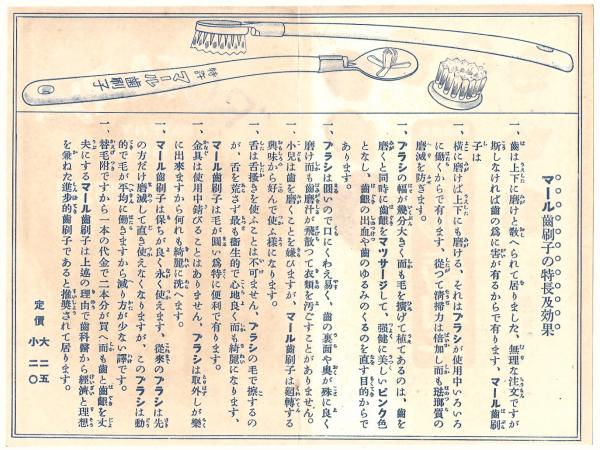 特許 マール歯刷子
マール歯刷子の特長及効果
一、歯は上下に磨けと教へられて居りました、無理な注文ですが
斯しなければ歯の為に害が有るからで有ります、マール歯刷
子は
一、横に磨けば上下にも磨ける、それはブラシが使用中いろいろ
に働くからで有ります、従つて清掃力は倍加し而も琺瑯質の
磨滅を防ぎます。
一、ブラシの幅が幾分大きく而も毛を擴げて植てあるのは、歯を
磨くと同時に歯齦をマツサージして、强健に美しいピンク色
となし、歯齦の出血や歯のゆるみのくるのを直す目的からで
あります。
一、ブラシは圓いので口にくわえ易く、歯の裏面や奥が殊に良く
磨け而も歯磨汁が飛散つて衣類を汚すことがありません。
一、小児は歯を磨くことを嫌ひますが、マール歯刷子は廻轉する
興味から好んで使ふ様になります。
一、舌は舌掻きを使ふことは不可ません、ブラシの毛で擦するの
が、舌を荒さず最も衛生的で心地良く而も綺麗になります、
マール歯刷子は毛が圓い為特に便利で有ります。
一、金具は使用中錆びることはありません、ブラシは取外しが樂
に出來ますから何れも綺麗に洗へます。
一、マール歯刷子は保ちが良く、永く使えます、從來のブラシは先
の方だけ磨滅して直き使えなくなりますが、このブラシは動
的で毛が平均に働きますから減り方が少ない譯です。
一、替毛附ですから一本の代金で二本分が買へ而も歯と歯齦を丈
夫にするマール歯刷子は上述の理由で歯科醫から經濟と理想
を兼ねた進步的歯刷子であると推奨されて居ります。
定價 大 二五
小 二〇